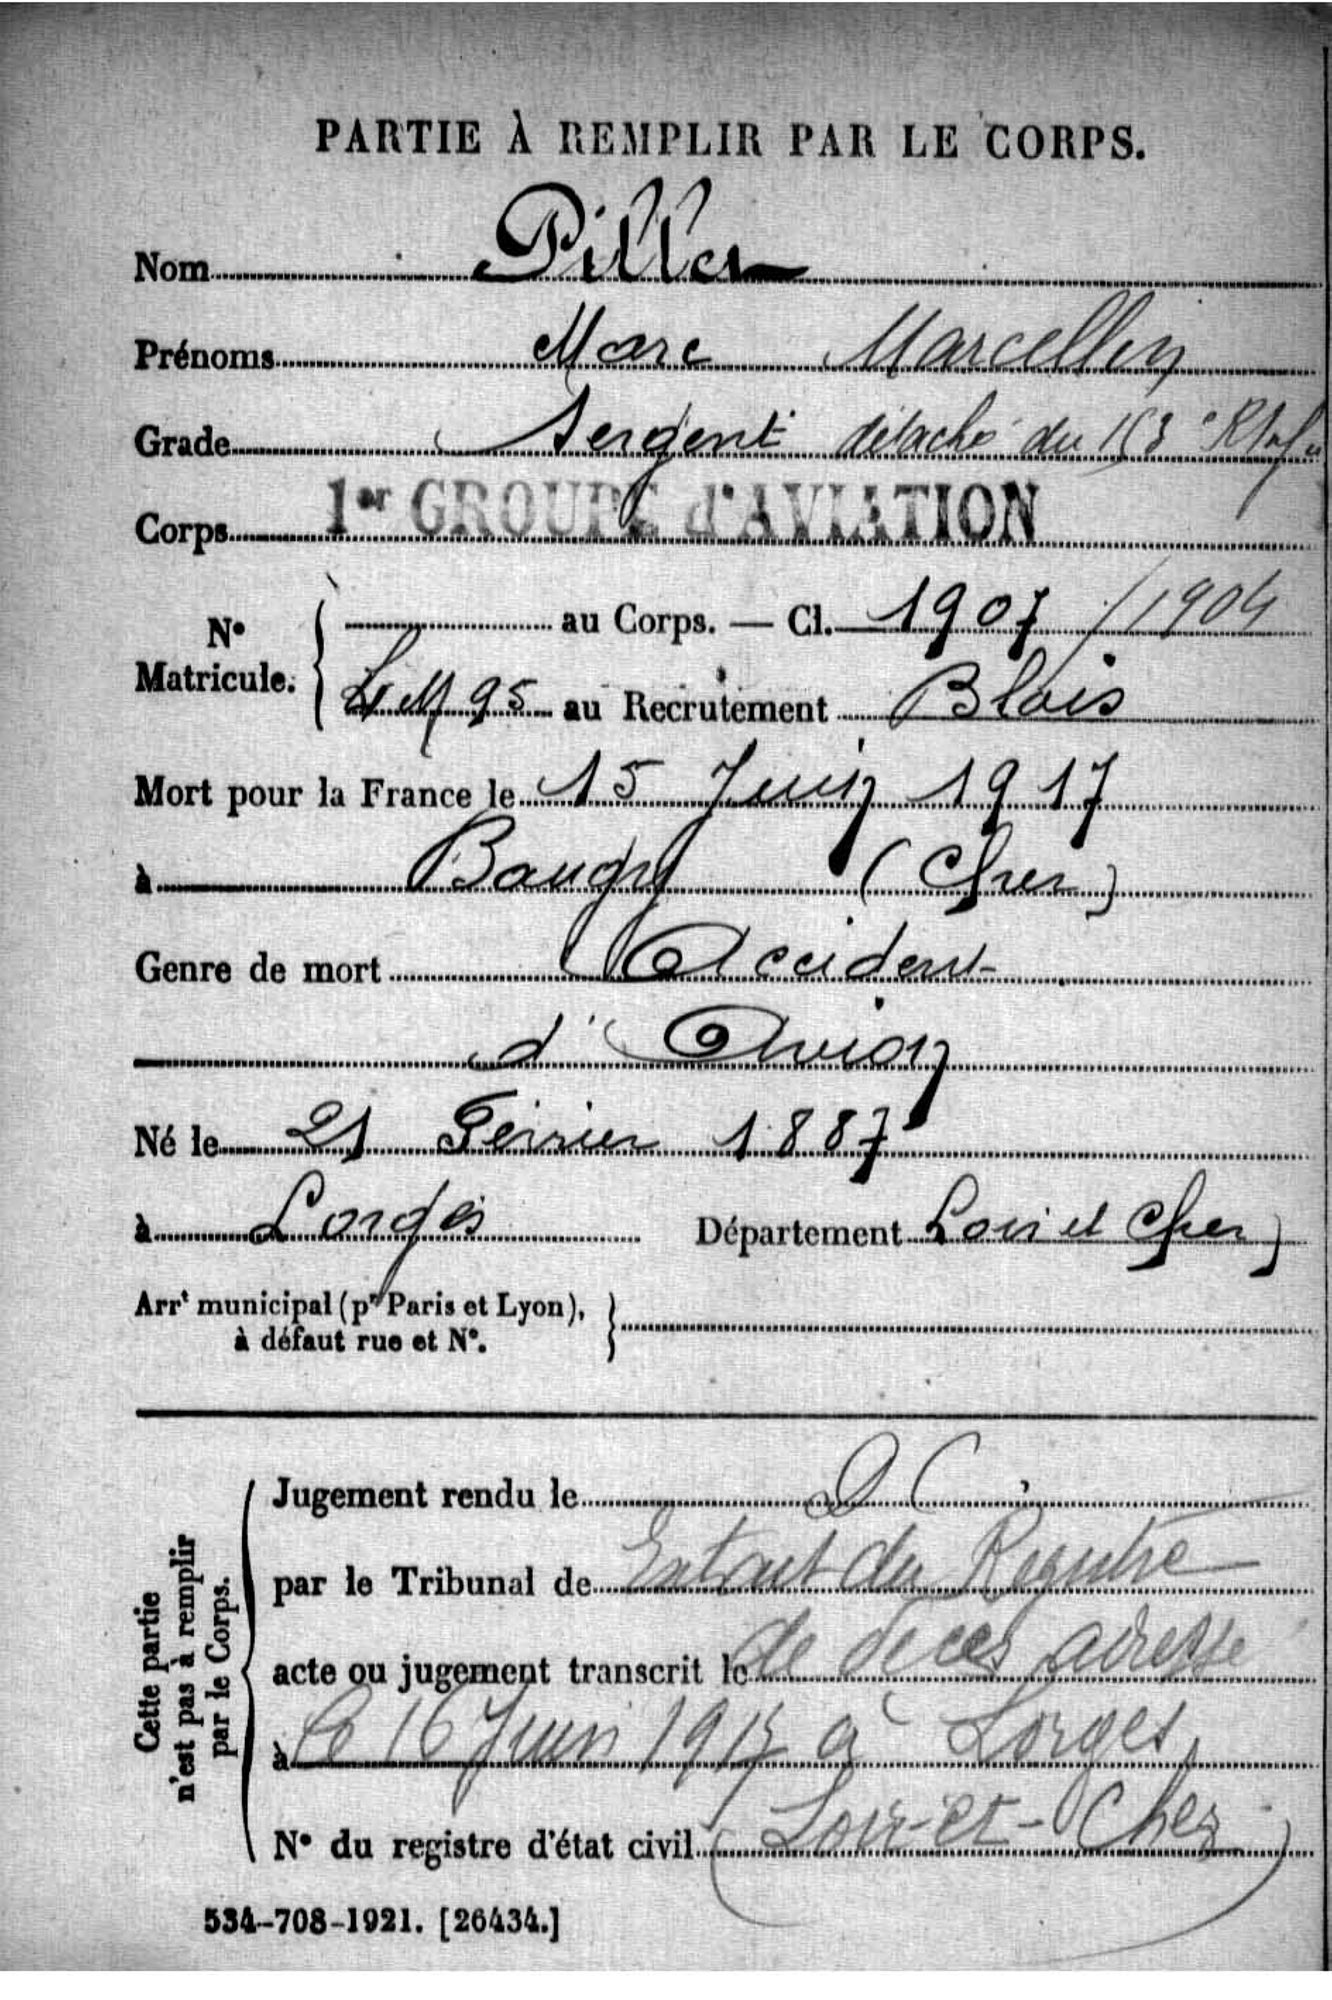 PARTIE À REMPLIR PAR LE CORPS.
Nom Piller
Prénoms Marc Marcellin
Grade Sergent détaché du 153e
Corps 1er GROUPE d'AVIATION
N° Matricule. au Corps. — Cl. 1907 / 1904
LM 95 au Recrutement Blois
Mort pour la France le 15 Juin 1917
à Baugy (Cher)
Genre de mort Accident
d'Avion
Né le 21 Février 1887
à Lorges Département Loir et Cher)
Arrt municipal (pr Paris et Lyon),
à défaut rue et N°.
Cette partie
n'est pas à remplir
par le Corps.
Jugement rendu le
par le Tribunal de Extrait du Registre
acte ou jugement transcrit le de décès adressé
à le 16 Juin 1917 à Lorges
N° du registre d'état civil (Loir-et-Cher)
534-708-1921. [26434.]